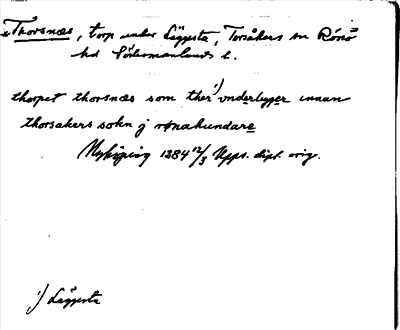 *Thorsnæs, torp under Läggesta, Torsåkers sn Rönö
hd Södermanlands l.
thorpet thorsnæs som ther¹⁾ vnderligger innan
thorsakers sokn j rønahundare
Nyköping 1384 12/3 Upps. dipl. orig.
¹⁾ Läggesta